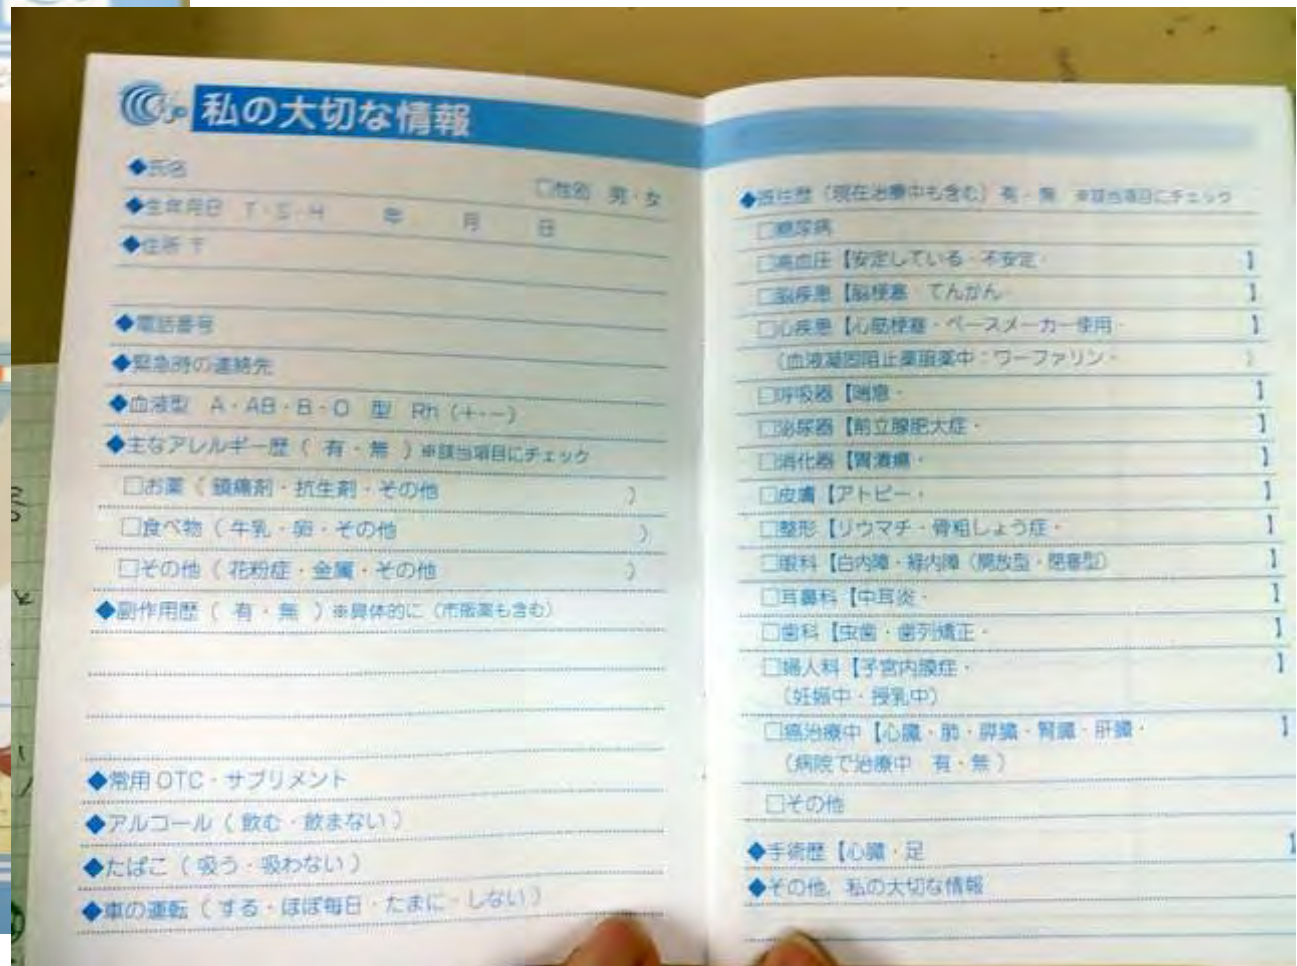 私の大切な情報
◆氏名
□性別 男・女
◆生年月日 T・S・H 年 月 日
◆住所 〒
◆電話番号
◆緊急時の連絡先
◆血液型 A・AB・B・O 型 Rh (+・-)
◆主なアレルギー歴 ( 有・無 ) ※該当項目にチェック
□お薬 ( 鎮痛剤・抗生剤・その他 )
□食べ物 ( 牛乳・卵・その他 )
□その他 ( 花粉症・金属・その他 )
◆副作用歴 ( 有・無 ) ※具体的に (市販薬も含む)
◆常用 OTC・サプリメント
◆アルコール ( 飲む・飲まない )
◆たばこ ( 吸う・吸わない )
◆車の運転 ( する・ほぼ毎日・たまに・しない )
◆既往歴 (現在治療中も含む) 有・無 ※該当項目にチェック
□糖尿病
□高血圧【安定している・不安定・ 】
□脳疾患【脳梗塞・てんかん・ 】
□心疾患【心筋梗塞・ペースメーカー使用・ 】
(血液凝固阻止薬服薬中：ワーファリン・ )
□呼吸器【喘息・ 】
□泌尿器【前立腺肥大症・ 】
□消化器【胃潰瘍・ 】
□皮膚【アトピー・ 】
□整形【リウマチ・骨粗しょう症・ 】
□眼科【白内障・緑内障 (開放型・閉塞型) 】
□耳鼻科【中耳炎・ 】
□歯科【虫歯・歯列矯正・ 】
□婦人科【子宮内膜症・ 】
(妊娠中・授乳中)
□癌治療中【心臓・肺・膵臓・腎臓・肝臓・ 】
(病院で治療中 有・無 )
□その他
◆手術歴【心臓・足 】
◆その他、私の大切な情報